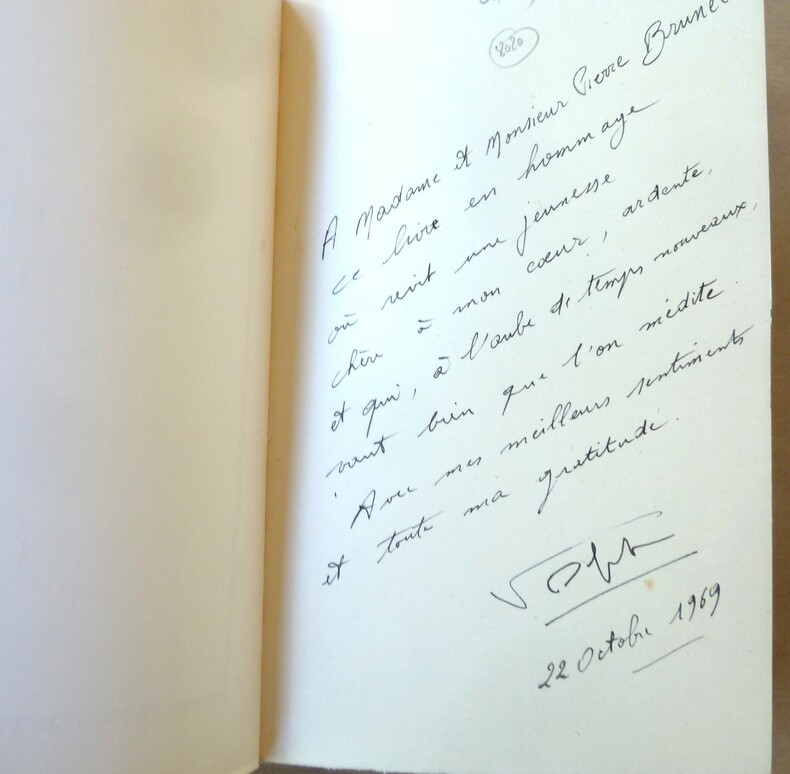 2020
A Madame et Monsieur Pierre Brunel
ce livre en hommage
où revit une jeunesse
chère à mon cœur, ardente,
et qui, à l'aube de temps nouveaux,
vaut bien que l'on médite.
Avec mes meilleurs sentiments
et toute ma gratitude.
22 Octobre 1969